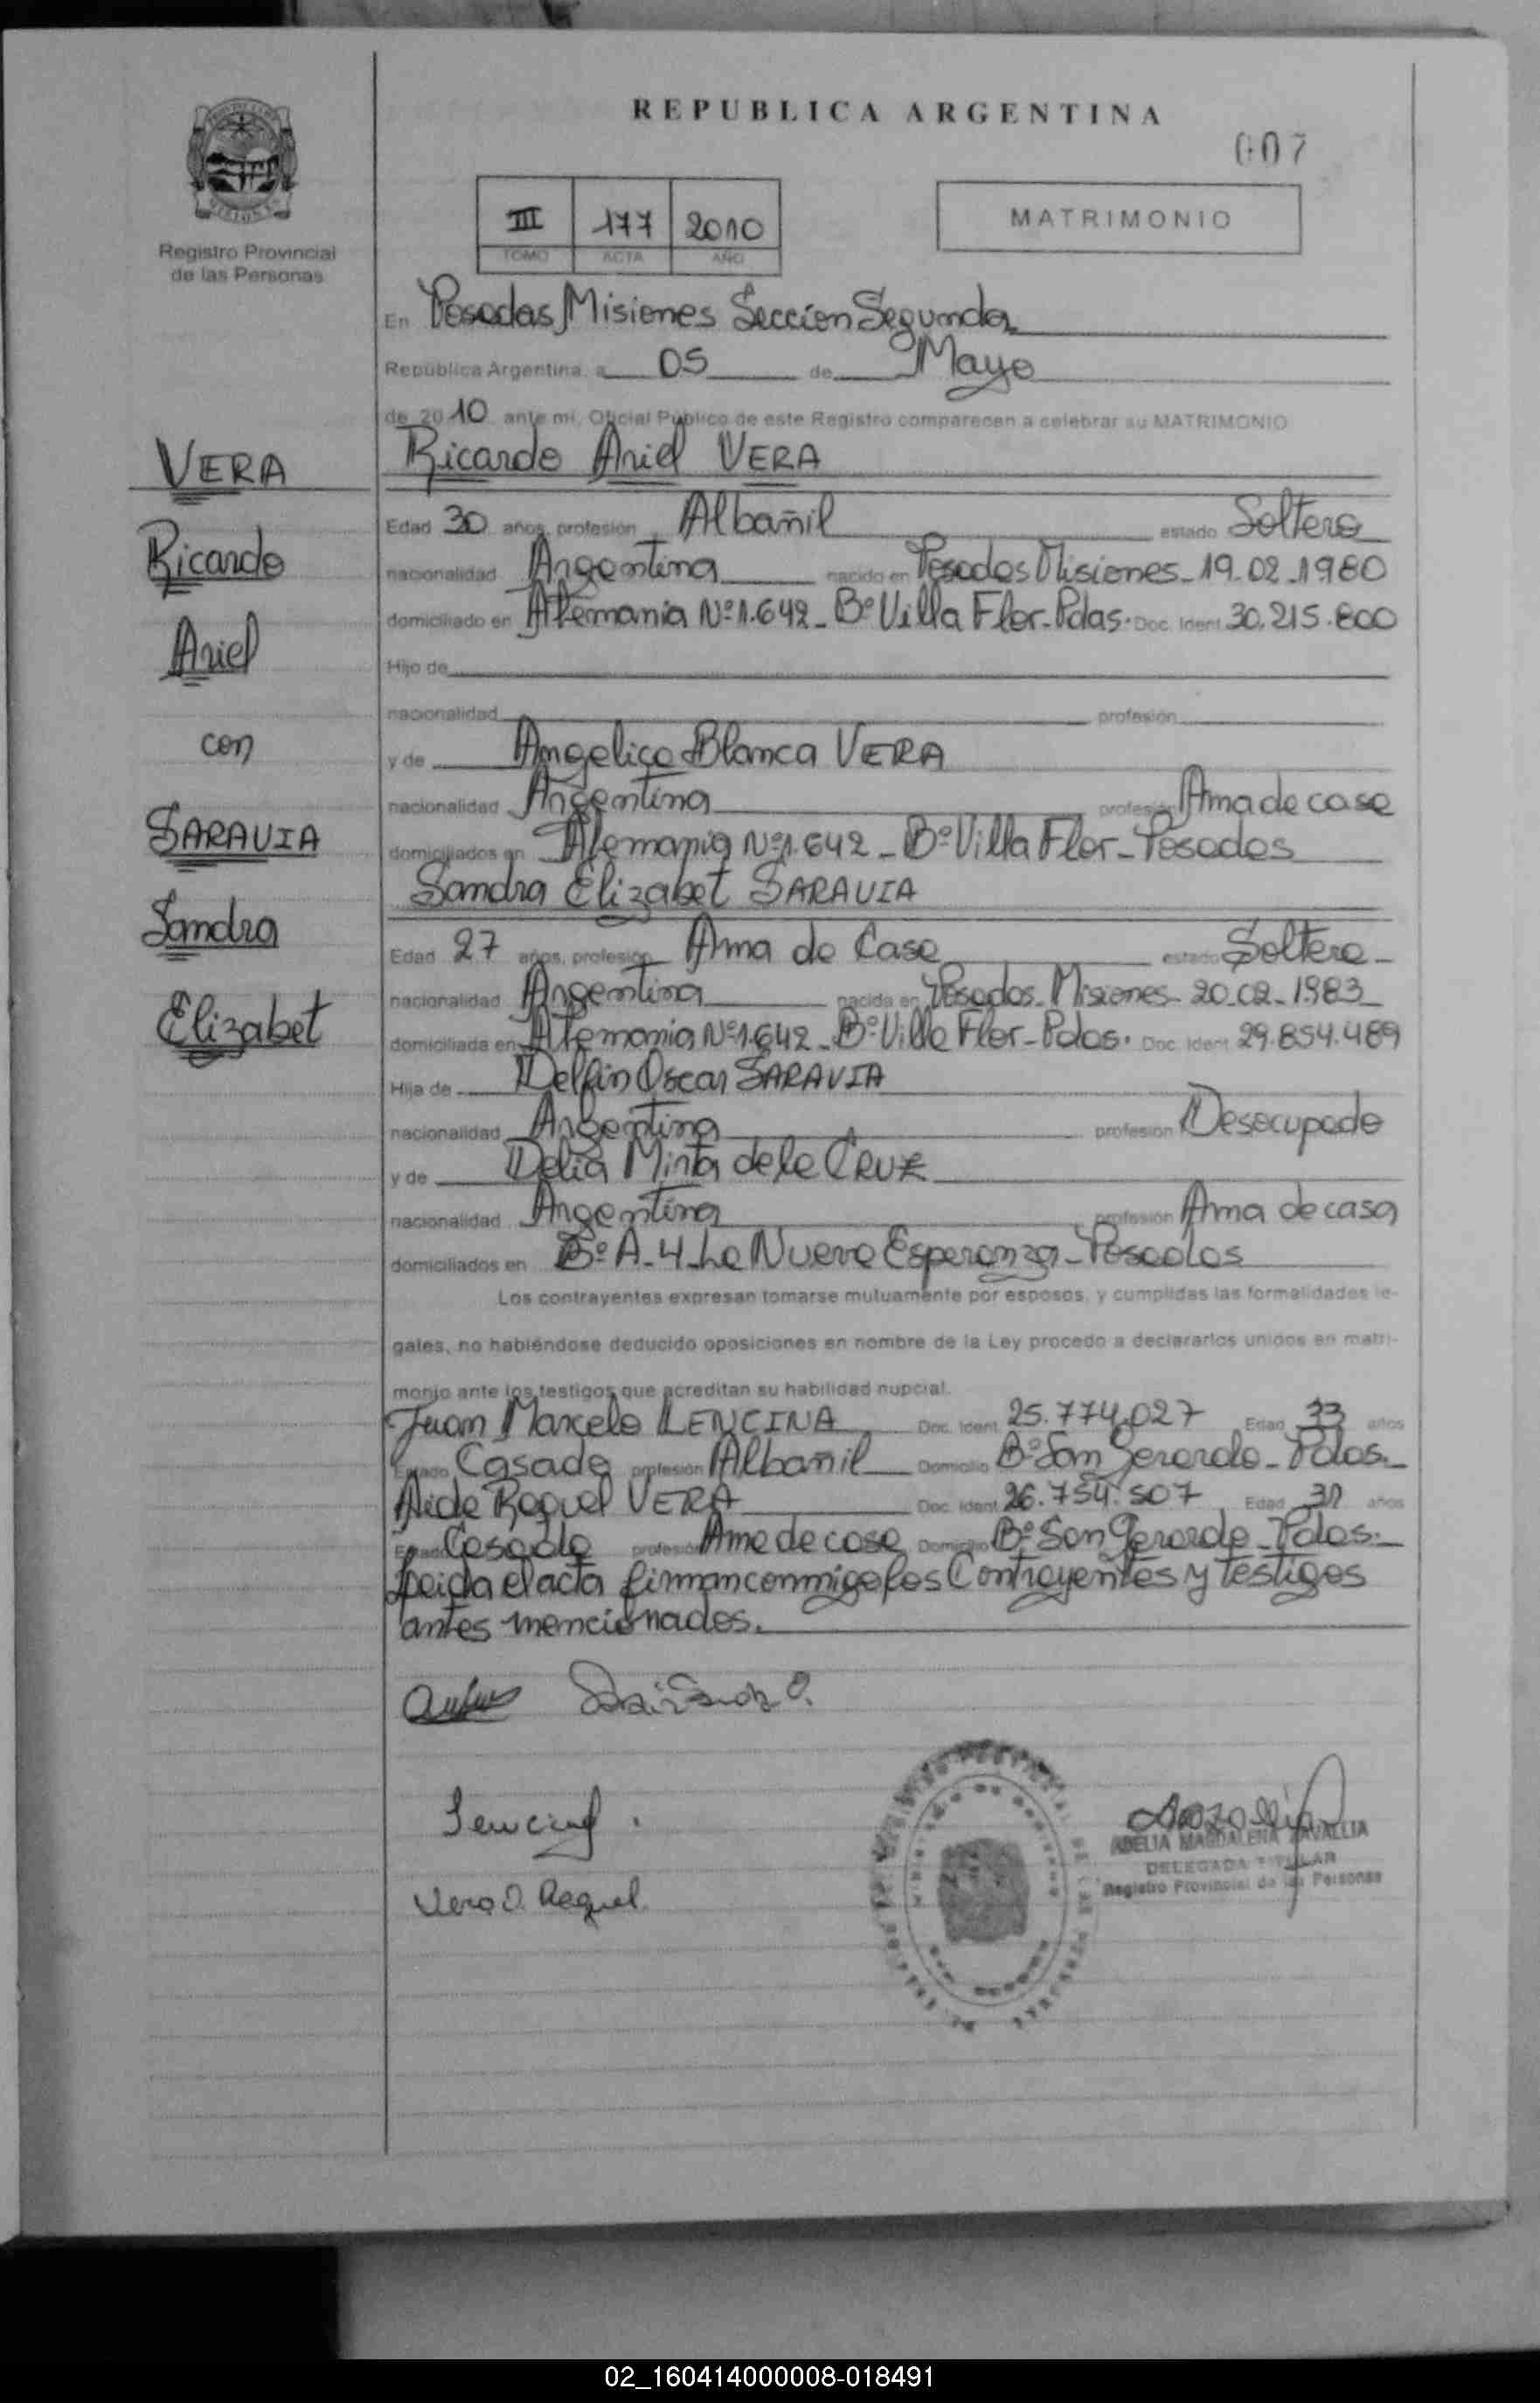 REPUBLICA ARGENTINA
007
Registro Provincial
de las Personas
III 177 2010
TOMO ACTA AÑO
MATRIMONIO
En Posadas, Misiones Sección Segunda
República Argentina, a 05 de Mayo
de 2010 ante mi, Oficial Público de este Registro comparecen a celebrar su MATRIMONIO
VERA
Ricardo
Ariel
con
SARAVIA
Sandra
Elizabet
Ricardo Ariel VERA
Edad 30 años, profesión Albañil estado Soltero
nacionalidad Argentina nacido en Posadas Misiones - 19-02-1980
domiciliado en Alemania Nº 1.642 - Bº Villa Flor - Pdas. Doc. Ident. 30.215.800
Hijo de
nacionalidad profesión
y de Angelica Blanca VERA
nacionalidad Argentina profesión Ama de casa
domiciliados en Alemania Nº 1.642 - Bº Villa Flor - Posadas
Sandra Elizabet SARAVIA
Edad 27 años, profesión Ama de Casa estado Soltera
nacionalidad Argentina nacida en Posadas - Misiones - 20-02-1983
domiciliada en Alemania Nº 1.642 - Bº Villa Flor - Pdas. Doc. Ident. 29.854.489
Hija de Delfin Oscar SARAVIA
nacionalidad Argentina profesión Desocupado
y de Delia Mirta de la CRUZ
nacionalidad Argentina profesión Ama de casa
domiciliados en Bº A-4 - La Nueva Esperanza - Posadas
Los contrayentes expresan tomarse mutuamente por esposos, y cumplidas las formalidades le-
gales, no habiéndose deducido oposiciones en nombre de la Ley procedo a declararlos unidos en matri-
monio ante los testigos que acreditan su habilidad nupcial.
Juan Marcelo LENCINA Doc. Ident. 25.774.027 Edad 33 años
Estado Casado profesión Albañil Domicilio Bº San Gerardo - Pdas.
Aide Raquel VERA Doc. Ident. 26.754.507 Edad 31 años
Estado Casada profesión Ama de casa Domicilio Bº San Gerardo - Pdas.
Leida el acta firman conmigo los Contrayentes y testigos
antes mencionados.
Lencina
Vera Raquel
ADELIA MAGDALENA ZAVALLIA
DELEGADA TITULAR
Registro Provincial de las Personas
02_160414000008-018491